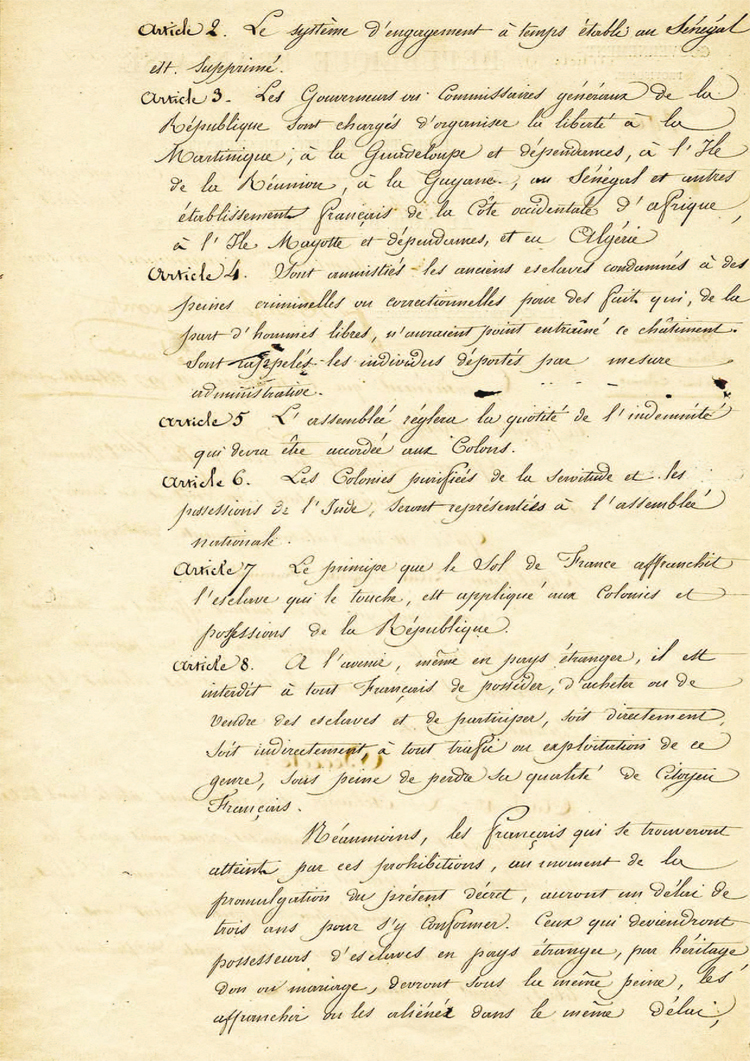 Article 2. Le système d'engagement à temps établi au Sénégal
est supprimé.
Article 3. Les Gouverneurs ou Commissaires généraux de la
République sont chargés d'organiser la liberté à la
Martinique, à la Guadeloupe et dépendances, à l'Ile
de la Réunion, à la Guyane, au Sénégal et autres
établissements français de la Côte occidentale d'afrique,
à l'Ile Mayotte et dépendances, et en Algérie
Article 4. Sont amnistiés les anciens esclaves condamnés à des
peines criminelles ou correctionnelles pour des faits qui, de la
part d'hommes libres, n'auraient point entraîné ce châtiment.
Sont rappelés les individus déportés par mesure
administrative.
Article 5 L'assemblée réglera la quotité de l'indemnité
qui devra être accordée aux Colons.
Article 6. Les Colonies purifiées de la servitude et les
possessions de l'Inde, seront représentées à l'assemblée
nationale.
Article 7 Le principe que le Sol de France affranchit
l'esclave qui le touche, est appliqué aux Colonies et
possessions de la République.
Article 8. A l'avenir, même en pays étranger, il est
interdit à tout Français de posséder, d'acheter ou de
vendre des esclaves et de participer, soit directement
soit indirectement, à tout trafic ou exploitation de ce
genre, sous peine de perdre sa qualité de Citoyen
Français.
Néanmoins, les français qui se trouveront
atteints par ces prohibitions, au moment de la
promulgation du présent décret, auront un délai de
trois ans pour s'y Conformer. Ceux qui deviendront
possesseurs d'esclaves en pays étranger, par héritage
don ou mariage, devront sous la même peine, les
affranchir ou les aliéner dans le même délai,